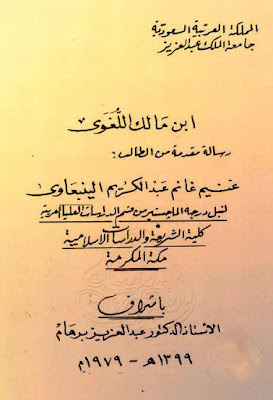 المملكة العربية السعودية
جامعة الملك عبد العزيز
ابن مالك اللغوى
رسالة مقدمة من الطالب:
غنيم غانم عبد الكريم الينبعاوى
لنيل درجة الماجستير من قسم الدراسات العليا العربية
كلية الشريعة والدراسات الاسلامية
مكة المكرمة
باشراف
الاستاذ الدكتور عبد العزيز برهام
١٣٩٩هـ - ١٩٧٩م